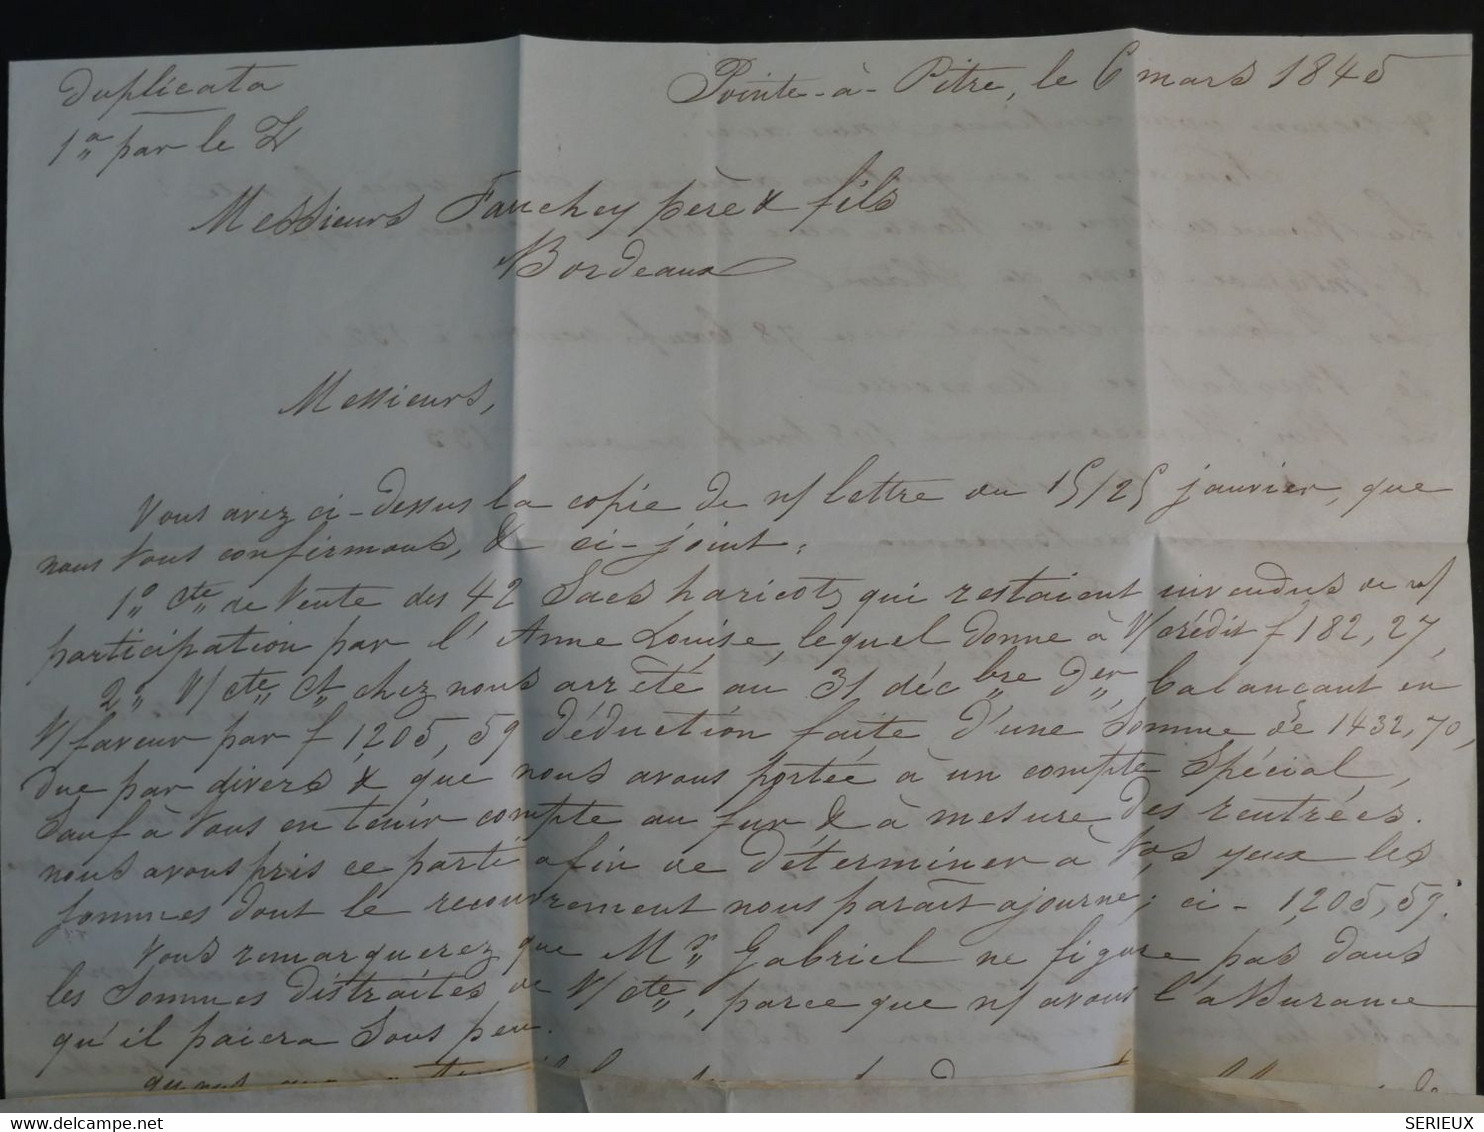 Duplicata
1a par le
Pointe-à-Pitre, le 6 mars 1845
Messieurs Fauchey père & fils
Bordeaux
Messieurs,
Vous avez ci-dessus la copie de n/ lettre du 15/25 janvier, que
nous vous confirmons, & ci-joint.
1o, cte de Vente des 42 Sacs haricots qui restaient invendus de n/
participation par l'Anne Louise, lequel donne à V/ crédit f 182,27,
2o V/ cte Ct chez nous arrêté au 31 décbre der balançant en
V/ faveur par f 1205,59 déduction faite d'une Somme de 1432,70,
due par divers & que nous avons portée à un compte Spécial,
Sauf à Vous en tenir compte au fur & à mesure des rentrées.
nous avons pris ce parti afin de déterminer à Vos yeux les
Sommes dont le recouvrement nous paraît ajourné; ci - 1205,59.
Vous remarquerez que Mr Gabriel ne figure pas dans
les Sommes distraites de V/ cte, parce que n/ avons l'assurance
qu'il paiera Sous peu.
quant aux
SERIEUX